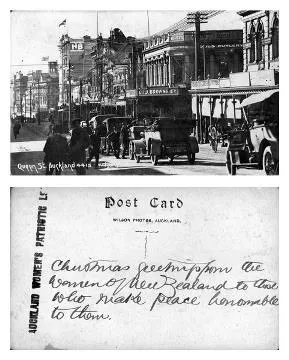 NB
J. BROWNE LTD
Queen St. Auckland 4415
Post Card
WILSON PHOTOS, AUCKLAND.
AUCKLAND WOMEN'S PATRIOTIC LE
Christmas greetings from the
women of New Zealand to those
who make peace honourable
to them.